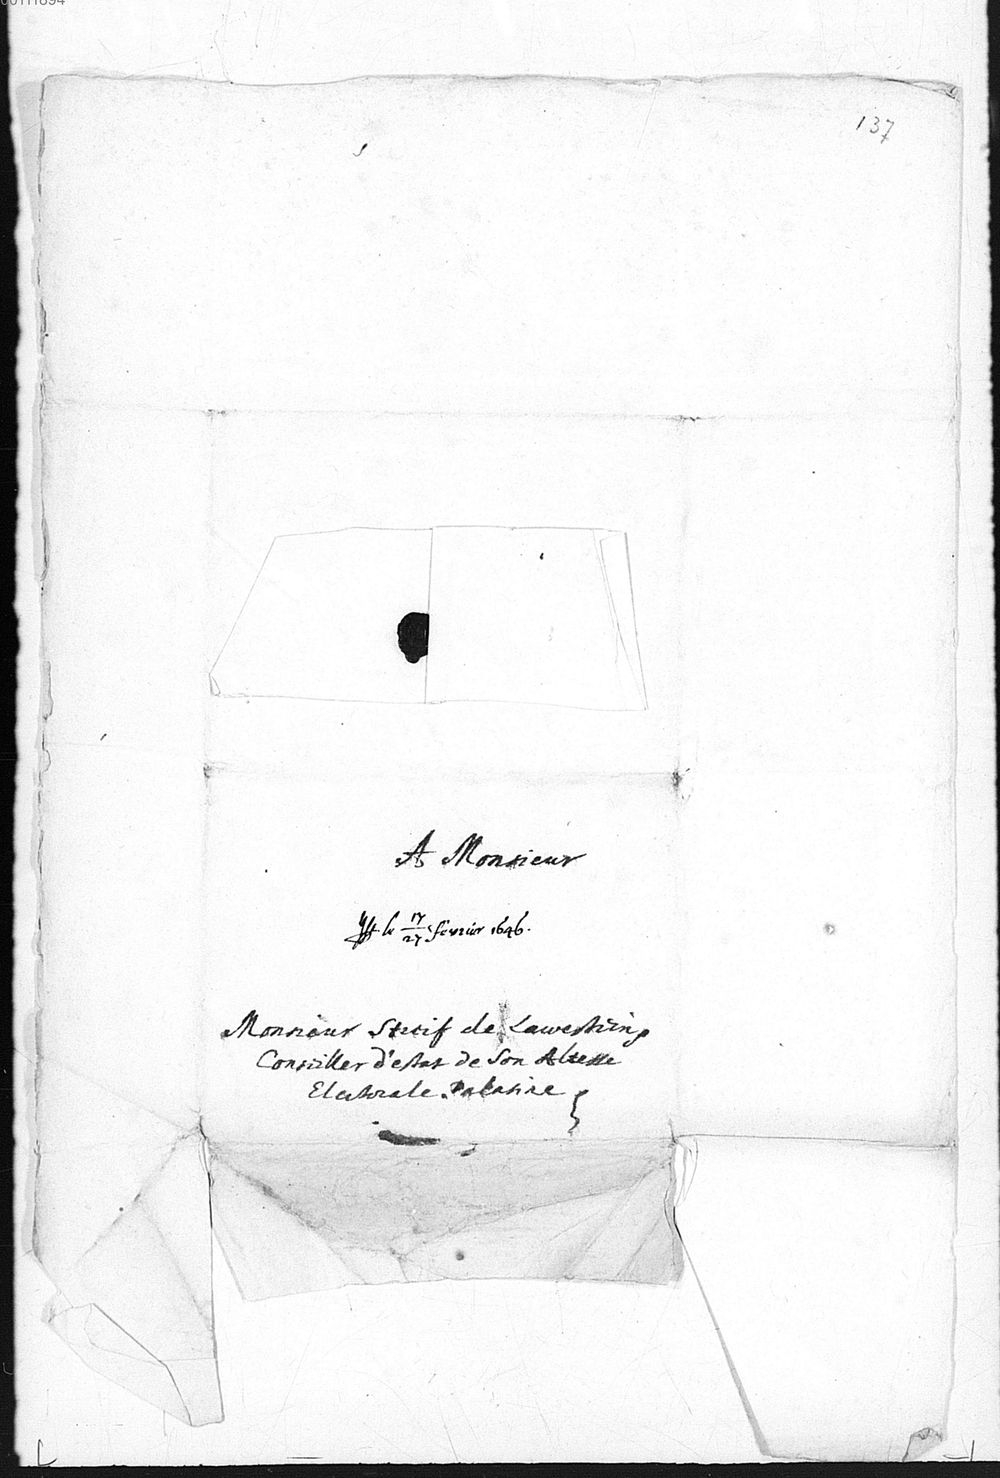 00111894
137
A Monsieur
le 17/27 février 1646.
Monsieur Streif de Lawenstein
Conseiller d'estat de Son Altesse
Electorale Palatine